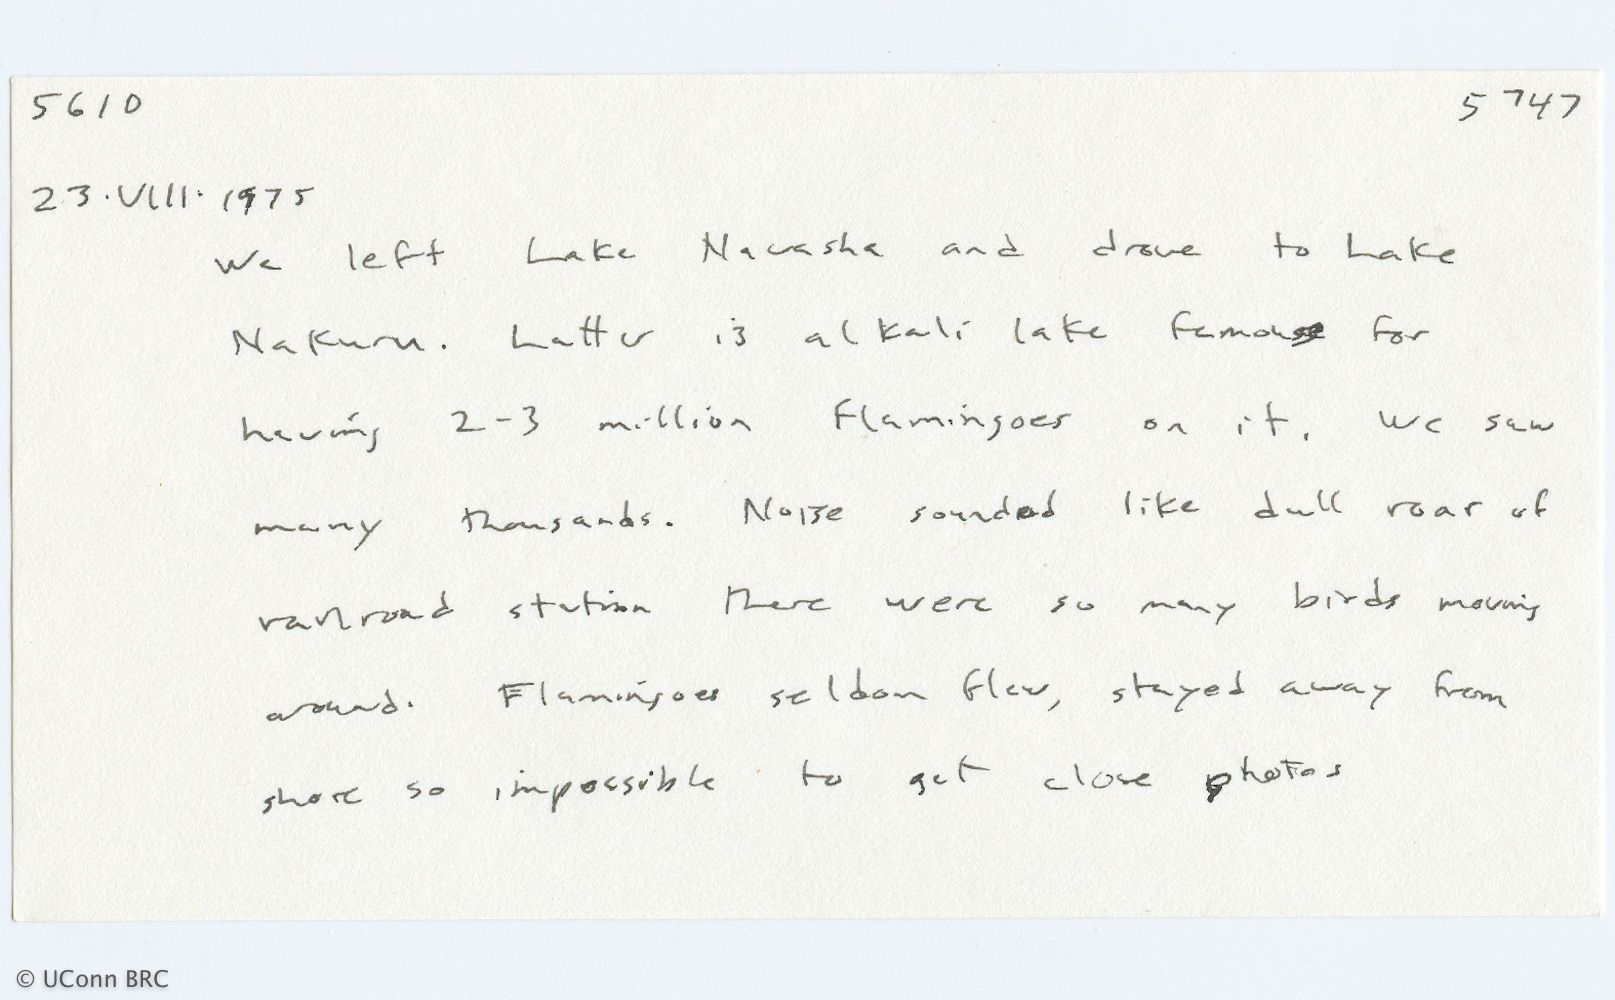 5610 5747
23.VIII.1975
We left Lake Navasha and drove to Lake
Nakuru. Latter is alkali lake famous for
having 2-3 million flamingoes on it. We saw
many thousands. Noise sounded like dull roar of
railroad station there were so many birds moving
around. Flamingoes seldom flew, stayed away from
shore so impossible to get close photos
© UConn BRC